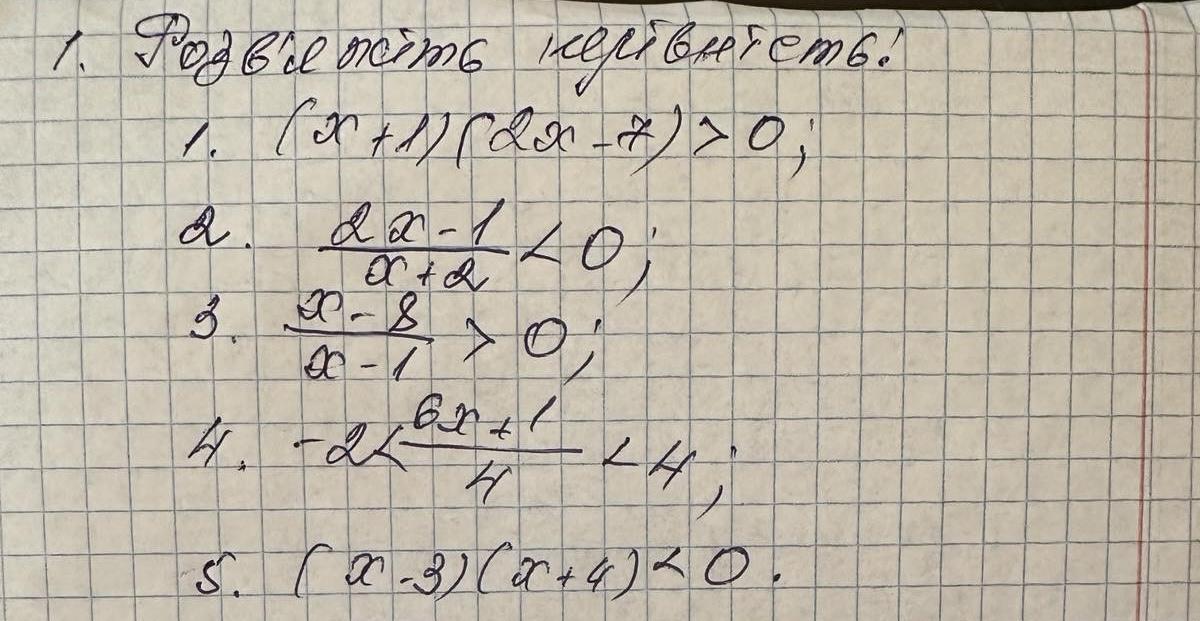 1. Розв'яжіть нерівність:
1. (x+1)(2x-7)>0;
2. (2x-1)/(x+2)<0;
3. (x-8)/(x-1)>0;
4. -2<(6x+1)/4<4;
5. (x-3)(x+4)<0.